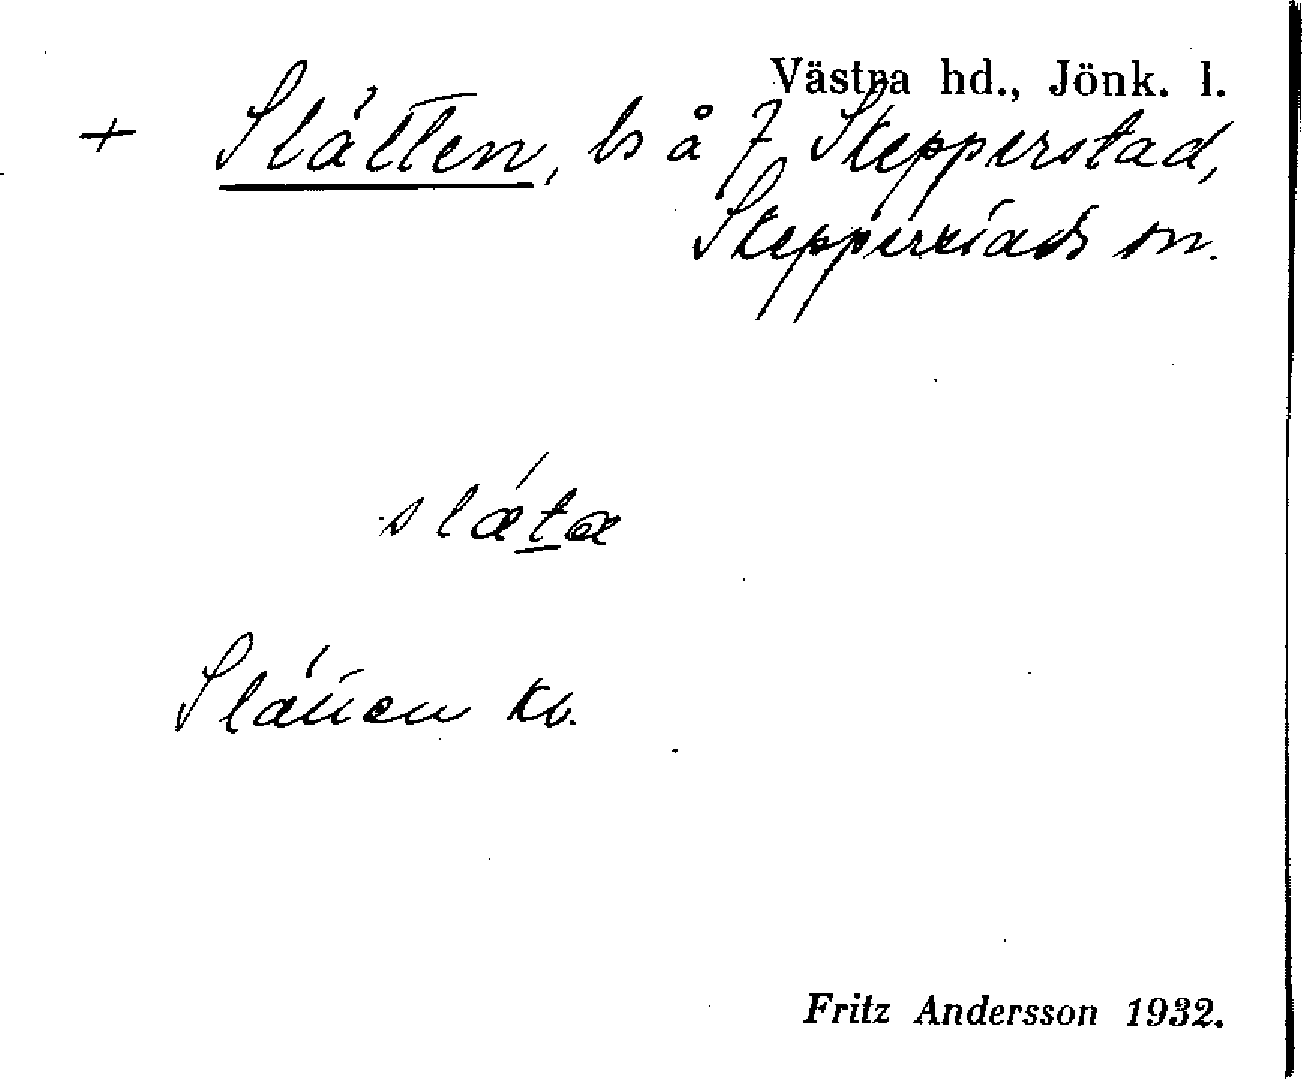 Västra hd., Jönk. l.
+ Slätten, ls å f Stepperstad,
Stepperstads sn.
slæta
Slätten kv.
Fritz Andersson 1932.